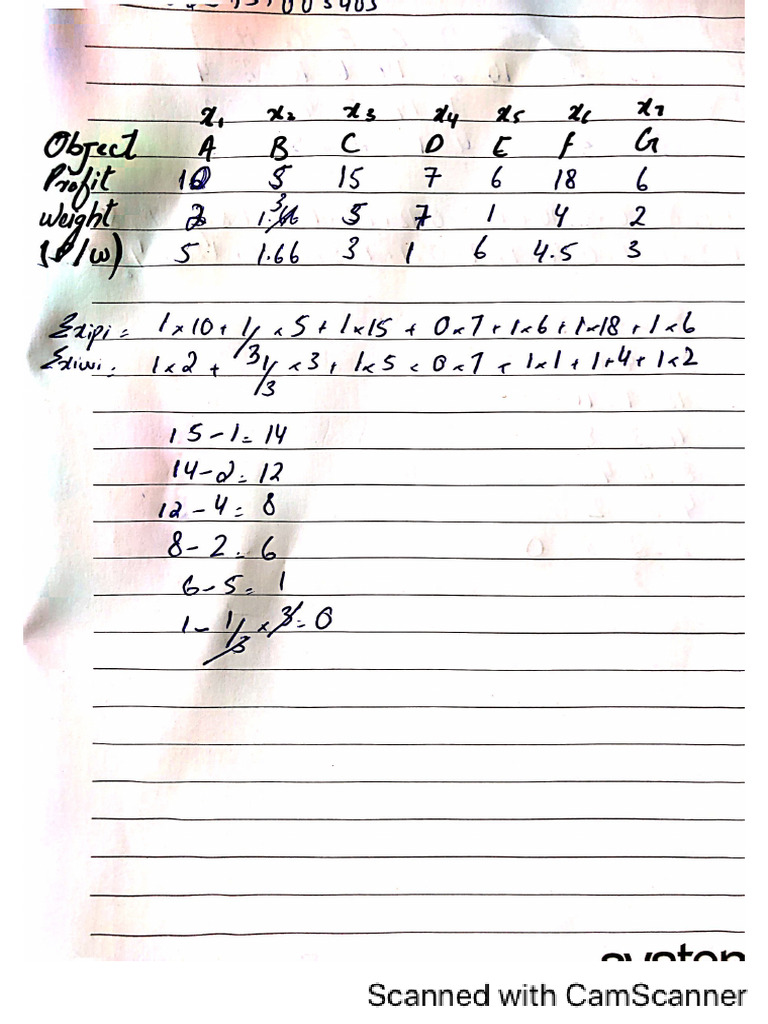 x₁ x₂ x₃ x₄ x₅ x₆ x₇
Object A B C D E F G
Profit 10 5 15 7 6 18 6
Weight 2 3 5 7 1 4 2
(P/w) 5 1.66 3 1 6 4.5 3
Σxipi = 1×10 + 1/3 ×5 + 1×15 + 0×7 + 1×6 + 1×18 + 1×6
Σxiwi = 1×2 + 1/3 ×3 + 1×5 × 0×7 + 1×1 + 1+4 + 1×2
15-1=14
14-2=12
12-4=8
8-2=6
6-5=1
1-1/3×3=0
Scanned with CamScanner